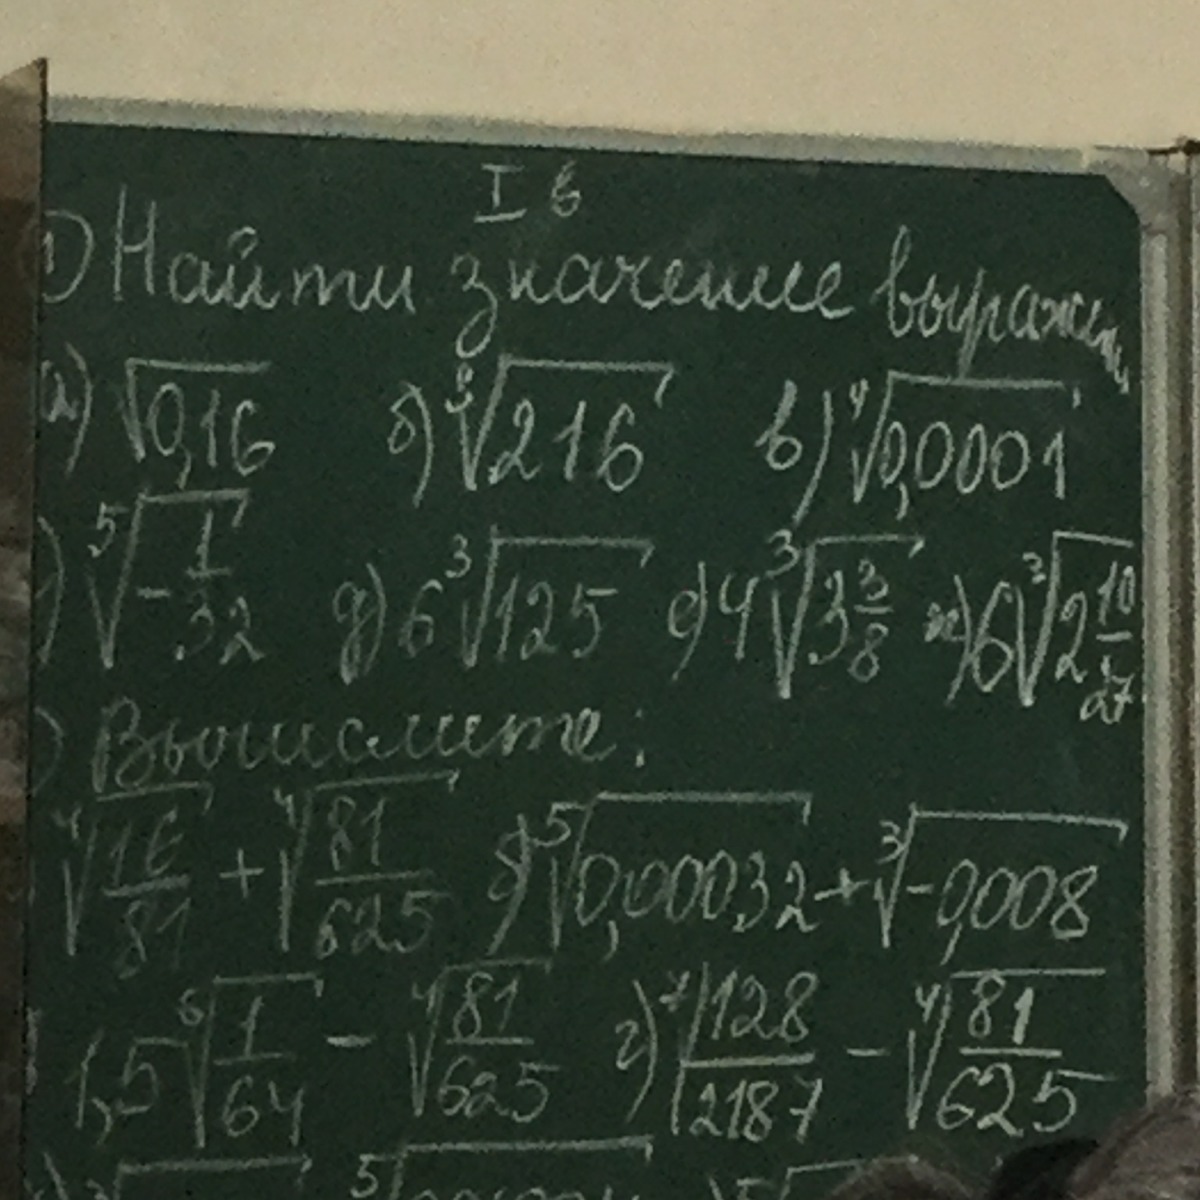 I в
1) Найти значение выражен
а) √0,16 б) ∛216 в) ⁴√0,0001
) ⁵√-1/32 д) 6 ³√125 е) 4 ³√3 3/8 ж) 6 ³√2 10/27
) Вычислите:
⁴√16/81 + ⁴√81/625 б) ⁵√0,00032 + ³√-0,008
1,5 ⁶√1/64 - ⁴√81/625 г) ⁷√128/2187 - ⁴√81/625